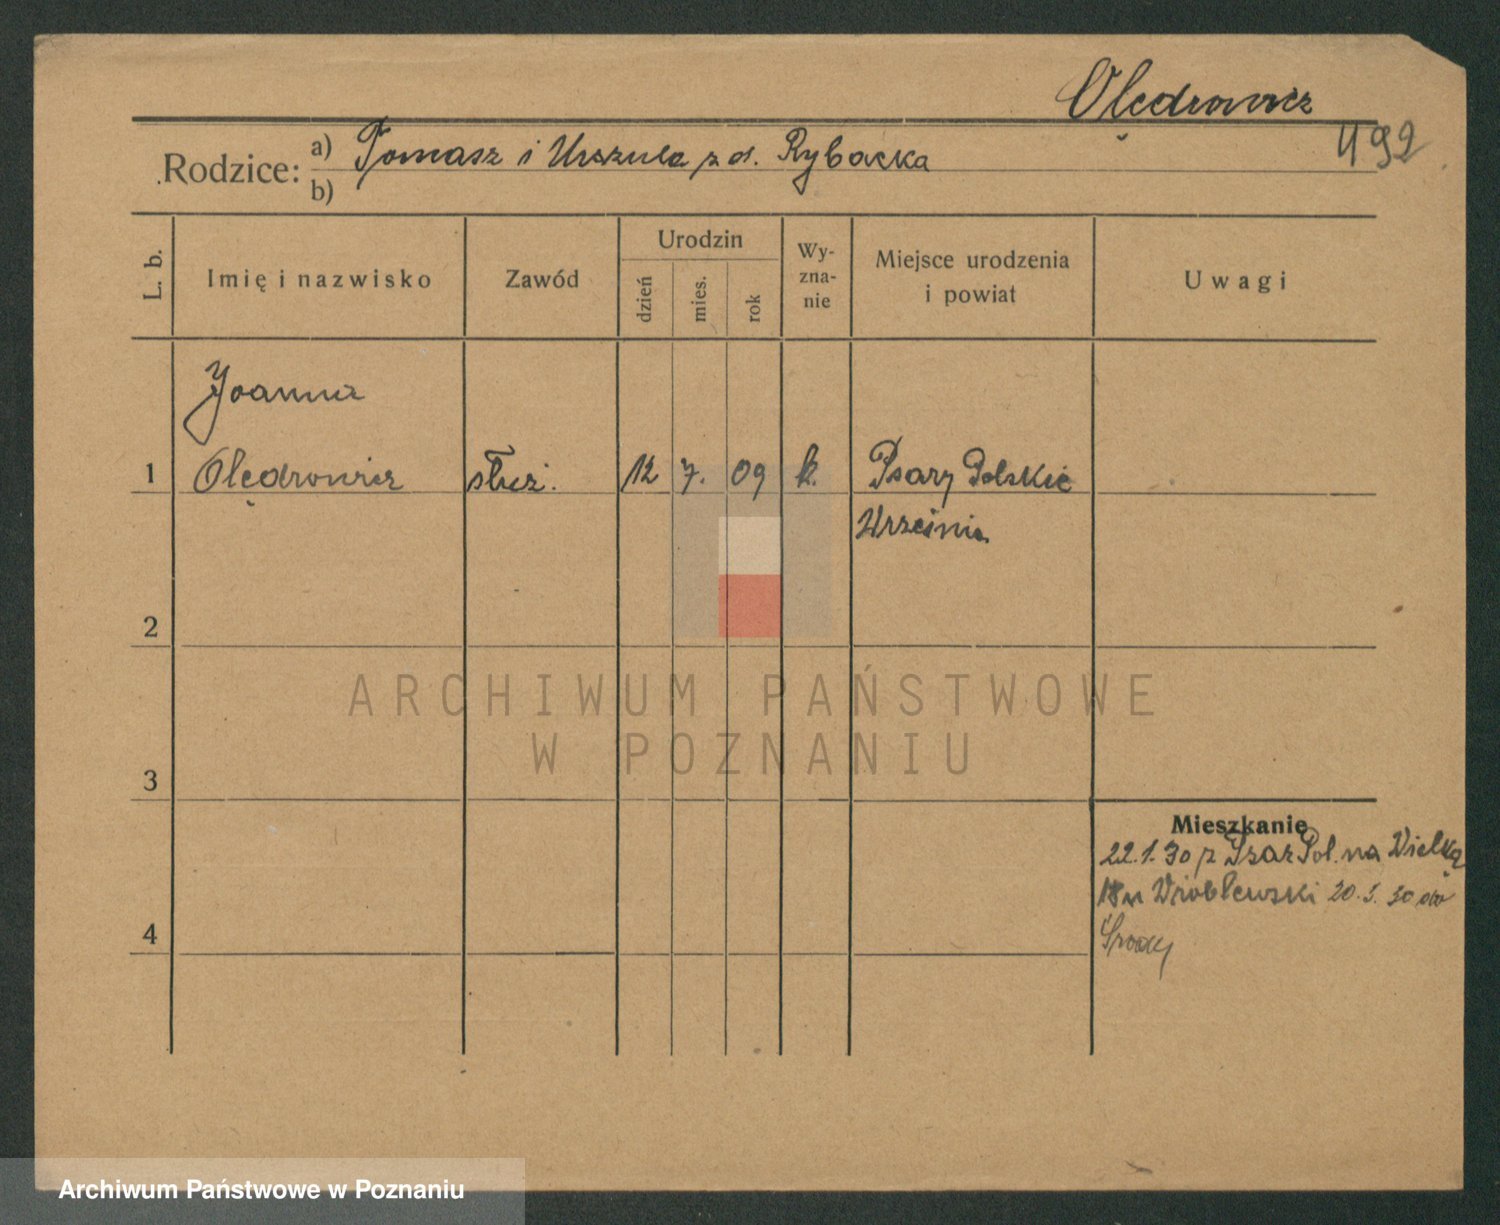 Olędrowicz
492
Rodzice: a) Tomasz i Urszula z d. Rybacka
b)
L. b.
Imię i nazwisko
Zawód
Urodzin
dzień
mies.
rok
Wy-
zna-
nie
Miejsce urodzenia
i powiat
Uwagi
Joanna
1 Olędrowicz służ. 12 7. 09 k. Psary Polskie
Września
2
ARCHIWUM PAŃSTWOWE
W POZNANIU
3
Mieszkanie
22.1.30 z Psar Pol. na Wielką
18 m Wróblewski 20.5.30 do
4
Środy
Archiwum Państwowe w Poznaniu